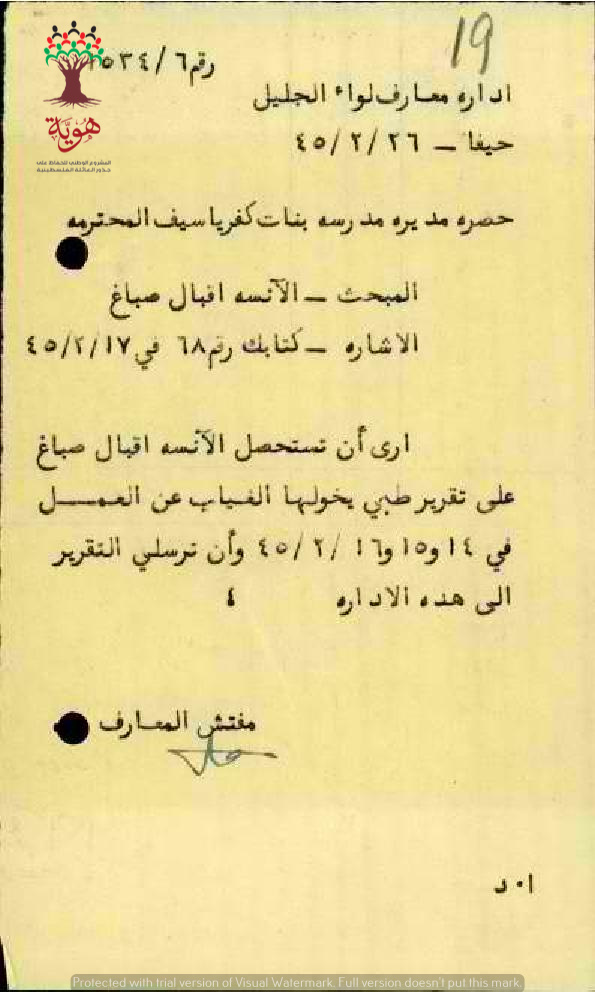 19
رقم ٦/٥٣٤
اداره معارف لواء الجليل
حيفا – ٤٥/٢/٢٦
هوية
المشروع الوطني للحفاظ على
جذور العائلة الفلسطينية
حضره مديره مدرسه بنات كفرياسيف المحترمه
المبحث – الآنسه اقبال صباغ
الاشاره – كتابك رقم ٦٨ في ٤٥/٢/١٧
ارى أن تستحصل الآنسه اقبال صباغ
على تقرير طبي يخولها الغياب عن العمـــل
في ١٤ و١٥ و١٦ /٤٥/٢ وأن ترسلي التقرير
الى هذه الاداره ٤
مفتش المعارف
ا٠ د
Protected with trial version of Visual Watermark. Full version doesn't put this mark.